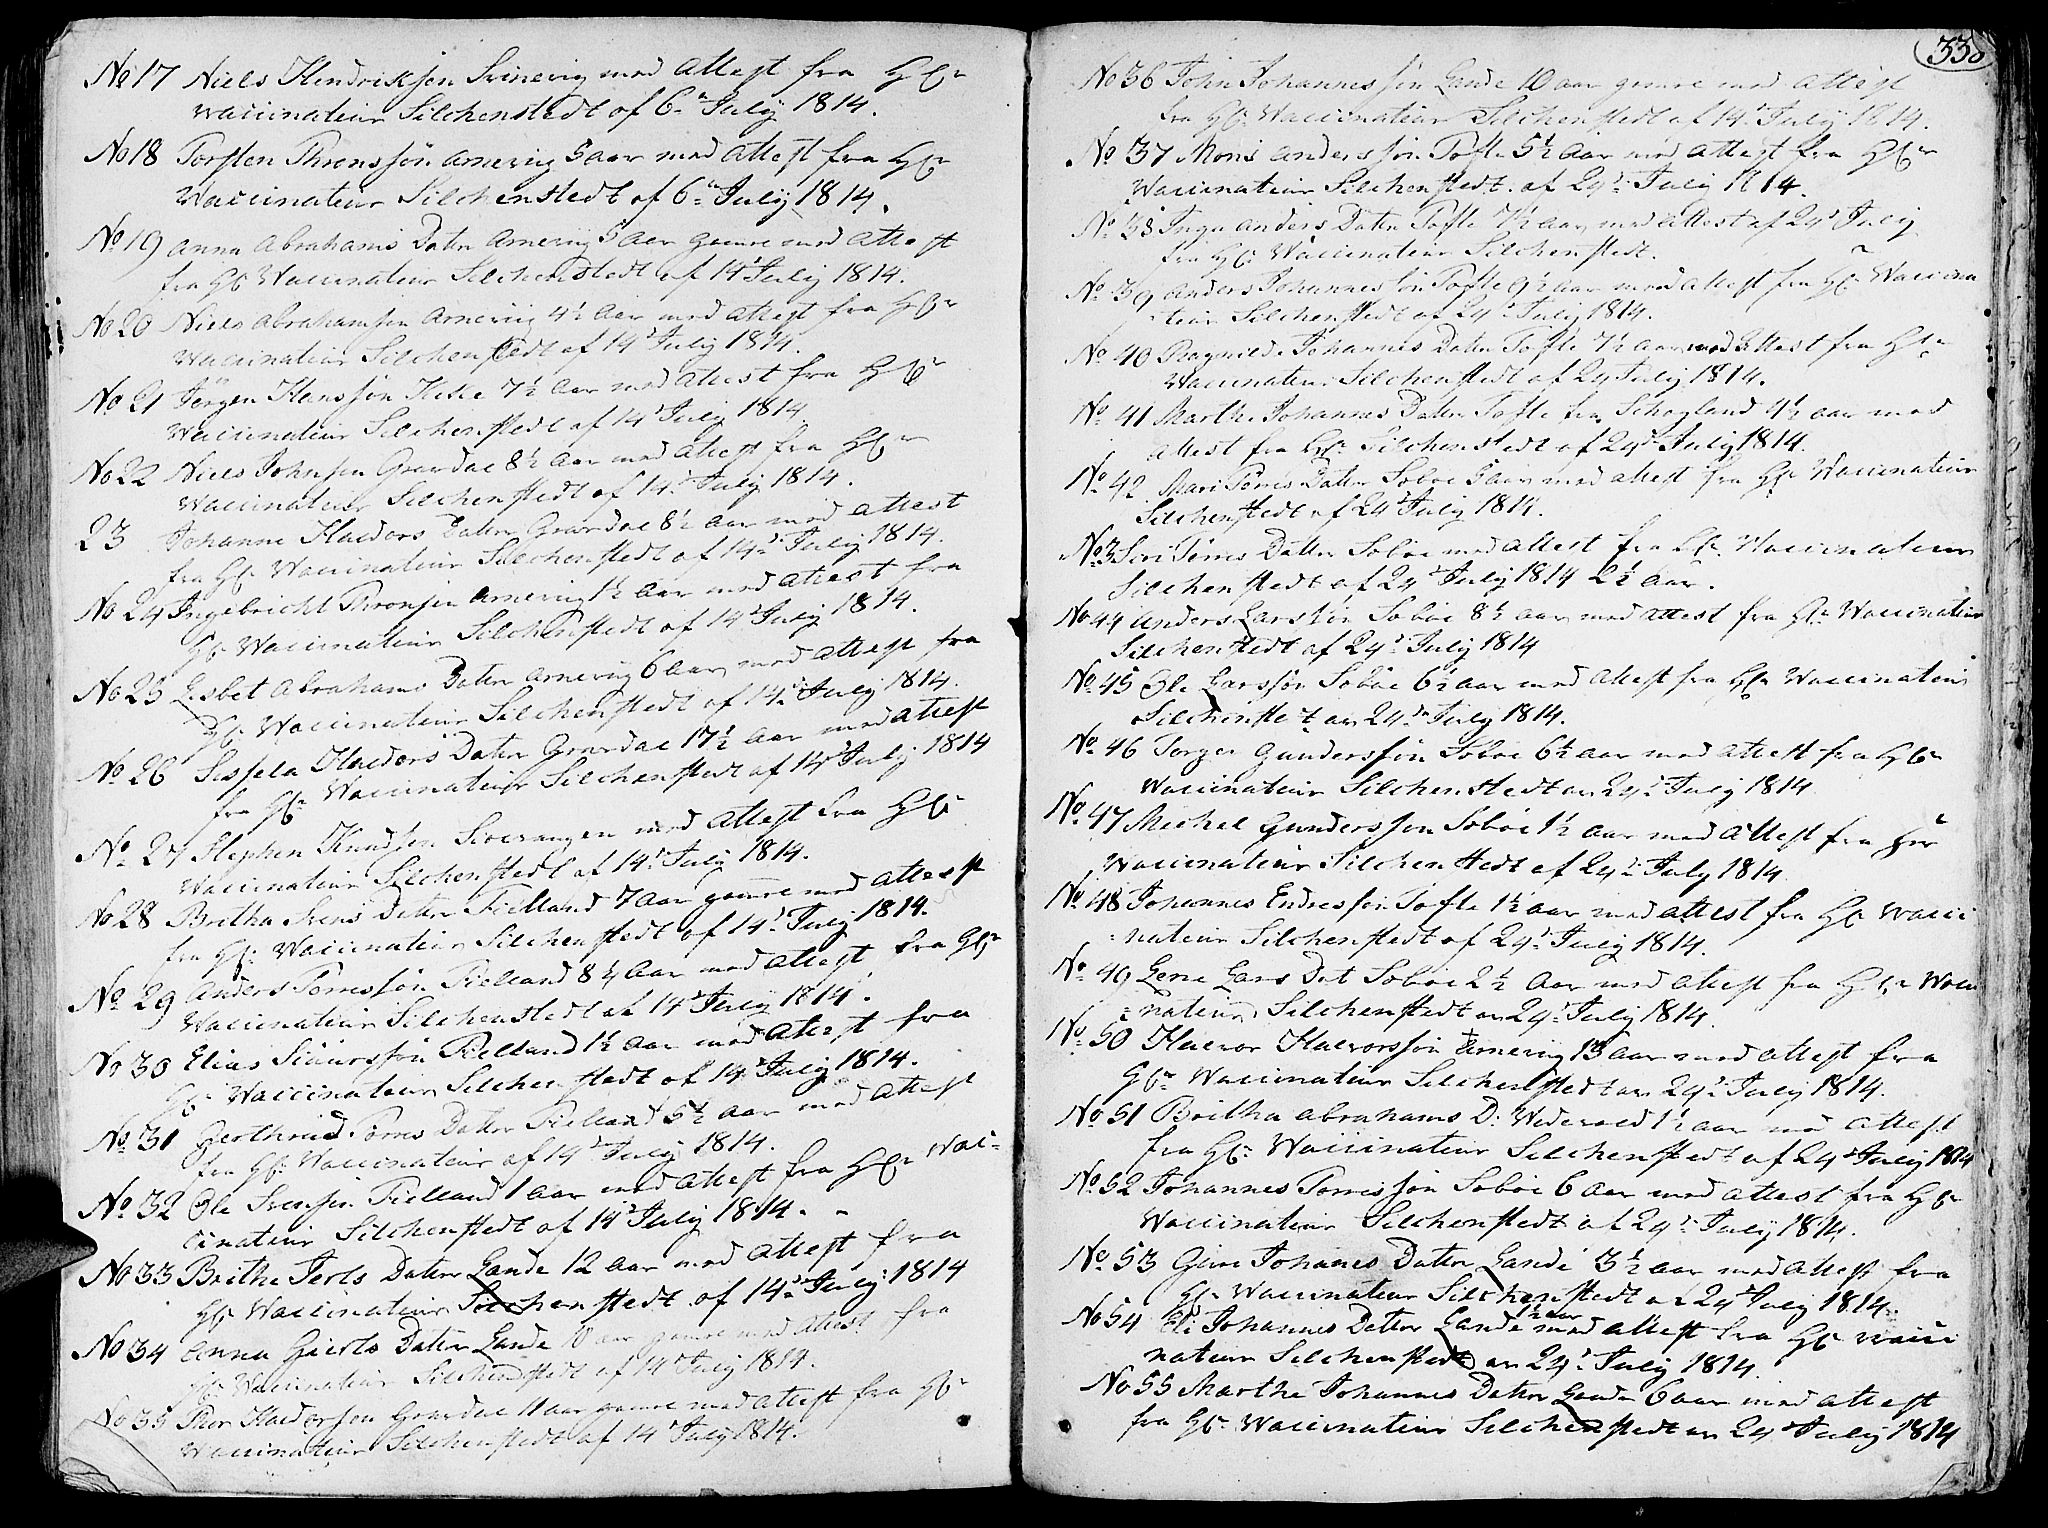 No 17 Niels Hendriksøn Svinevig med Attest fra Hr
Vaccinateur Silchenstedt af 6te July 1814.
No 18 Torsten Thronssøn Arnevig 5 aar med Attest fra Hr
Vaccinateur Silchenstedt af 6te July 1814.
No 19 Anna Abrahams Datter Arnevig 5 aar gamle med Attest
fra Hr Vaccinateur Silchenstedt af 14d July 1814.
No 20 Niels Abrahamsøn Arnevig 4½ aar med Attest fra Hr
Vaccinateur Silchenstedt af 14d July 1814.
No 21 Jørgen Hanssøn 7½ aar med Attest fra Hr
Vaccinateur Silchenstedt af 14d July 1814
No 22 Niels Johnsøn Grardal 8½ aar med Attest fra Hr
Vaccinateur Silchenstedt af 14d July 1814.
23 Johanne Haldors Datter Grardal 8½ aar med Attest
fra Hr Vaccinateur Silchenstedt af 14d July 1814.
No 24 Ingebricht Thronsøn Arnevig 1½ aar med Attest fra
Hr Vaccinateur Silchenstedt af 14d July 1814.
No 25 Lisbet Abrahams Datter Arnevig 6 aar med Attest fra
Hr Vaccinateur Silchenstedt af 14d July 1814.
No 26 Sissela Haldors Datter Grardal 17½ aar med Attest
fra Hr Vaccinateur Silchenstedt af 14d July 1814
No 27 Stephen Knudsøn med Attest fra Hr
Vaccinateur Silchenstedt af 14d July 1814.
No 28 Britha Svens Datter Fielland 7 aar gamle med Attest
fra Hr Vaccinateur Silchenstedt af 14d July 1814.
No 29 Anders Torressøn Fielland 8½ aar med Attest fra Hr
Vaccinateur Silchenstedt af 14d July 1814.
No 30 Elias Siurssøn Fielland 1½ aar med Attest fra
Hr Vaccinateur Silchenstedt af 14d July 1814.
No 31 Gerthrud Torres Datter Fielland 5½ aar med Attest
fra Hr Vaccinateur af 14d July 1814.
No 32 Ole Svensøn Fielland 1 aar med Attest fra Hr Vac-
cinateur Silchenstedt af 14d July 1814.
No 33 Brithe Datter Lande 12 aar med Attest fra
Hr Vaccinateur Silchenstedt af 14d July 1814
No 34 Anna Datter Lande 10 aar gamle med Attest fra
Hr Vaccinateur Silchenstedt af 14d July 1814.
No 35 Thor Haldorsøn Grardal 11 aar gamle med Attest fra Hr
Vaccinateur Silchenstedt af 14d July 1814.
338
No 36 John Johannessøn Lande 10 aar gamle med Attest
fra Hr Vaccinateur Silchenstedt af 14d July 1814.
No 37 Mons Anderssøn Tofte 5½ aar med Attest fra Hr
Vaccinateur Silchenstedt af 24d July 1814.
No 38 Inga Anders Datter Tofte 7½ aar med Attest af 24d July
fra Hr Vaccinateur Silchenstedt.
No 39 Anders Johannessøn Tofte 9½ aar med Attest fra Hr Vaccina
teur Silchenstedt af 24d July 1814.
No 40 Ragnild Johannes Datter Tofte 7½ aar med Attest fra Hr
Vaccinateur Silchenstedt af 24 July 1814.
No 41 Marthe Johannes Datter Tofte fra Schogland 4½ aar med
Attest fra Hr Silchenstedt af 24d July 1814.
No 42 Mari Torris Datter Soböe 5 aar med Attest fra Hr Vaccinateur
Silchenstedt af 24d July 1814.
No 3 Siri Torris Datter Soböe med Attest fra Hr Vaccinateur
Silchenstedt af 24d July 1814 2½ aar.
No 44 Anders Larssøn Soböe 8½ aar med Attest fra Hr Vaccinateur
Silchenstedt af 24d July 1814
No 45 Ole Larssøn Soböe 6½ aar med Attest fra Hr Vaccinateur
Silchenstet an 24d July 1814.
No 46 Torger Gunderssøn Soböe 6½ aar med Attest fra Hr
Vaccinateur Silchenstedt an 24d July 1814
No 47 Michel Gunderssøn Soböe 1½ aar med Attest fra Hr
Vaccinateur Silchenstedt af 24d July 1814.
No 48 Johannes Endressøn Tofte 1½ aar med Attest fra Hr Vacci
nateur Silchenstedt af 24d July 1814.
No 49 Lene Lars Dat Soböe 2½ aar med Attest fra Hr Vacci
nateur Silchenstedt an 24d July 1814.
No 50 Halvor Halvorssøn Arnevig 13 aar med Attest fra
Hr Vaccinateur Silchenstedt an 24d July 1814.
No 51 Britha Abrahams D: 1½ aar med Attest
fra Hr Vaccinateur Silchenstedt af 24d July 1814
No 52 Johannes Torrissøn Soböe 6 aar med Attest fra Hr
Vaccinateur Silchenstedt af 24d July 1814.
No 53 Johanes Datter Lande 3½ aar med Attest fra
Hr Vaccinateur Silchenstedt an 24d July 1814.
No 54 Eli Johannes Datter Lande 1½ aar med Attest fra Hr Vacci
nateur Silchenstedt an 24d July 1814.
No 55 Marthe Johannes Datter Lande 6 aar med Attest
fra Hr Vaccinateur Silchenstedt an 24d July 1814